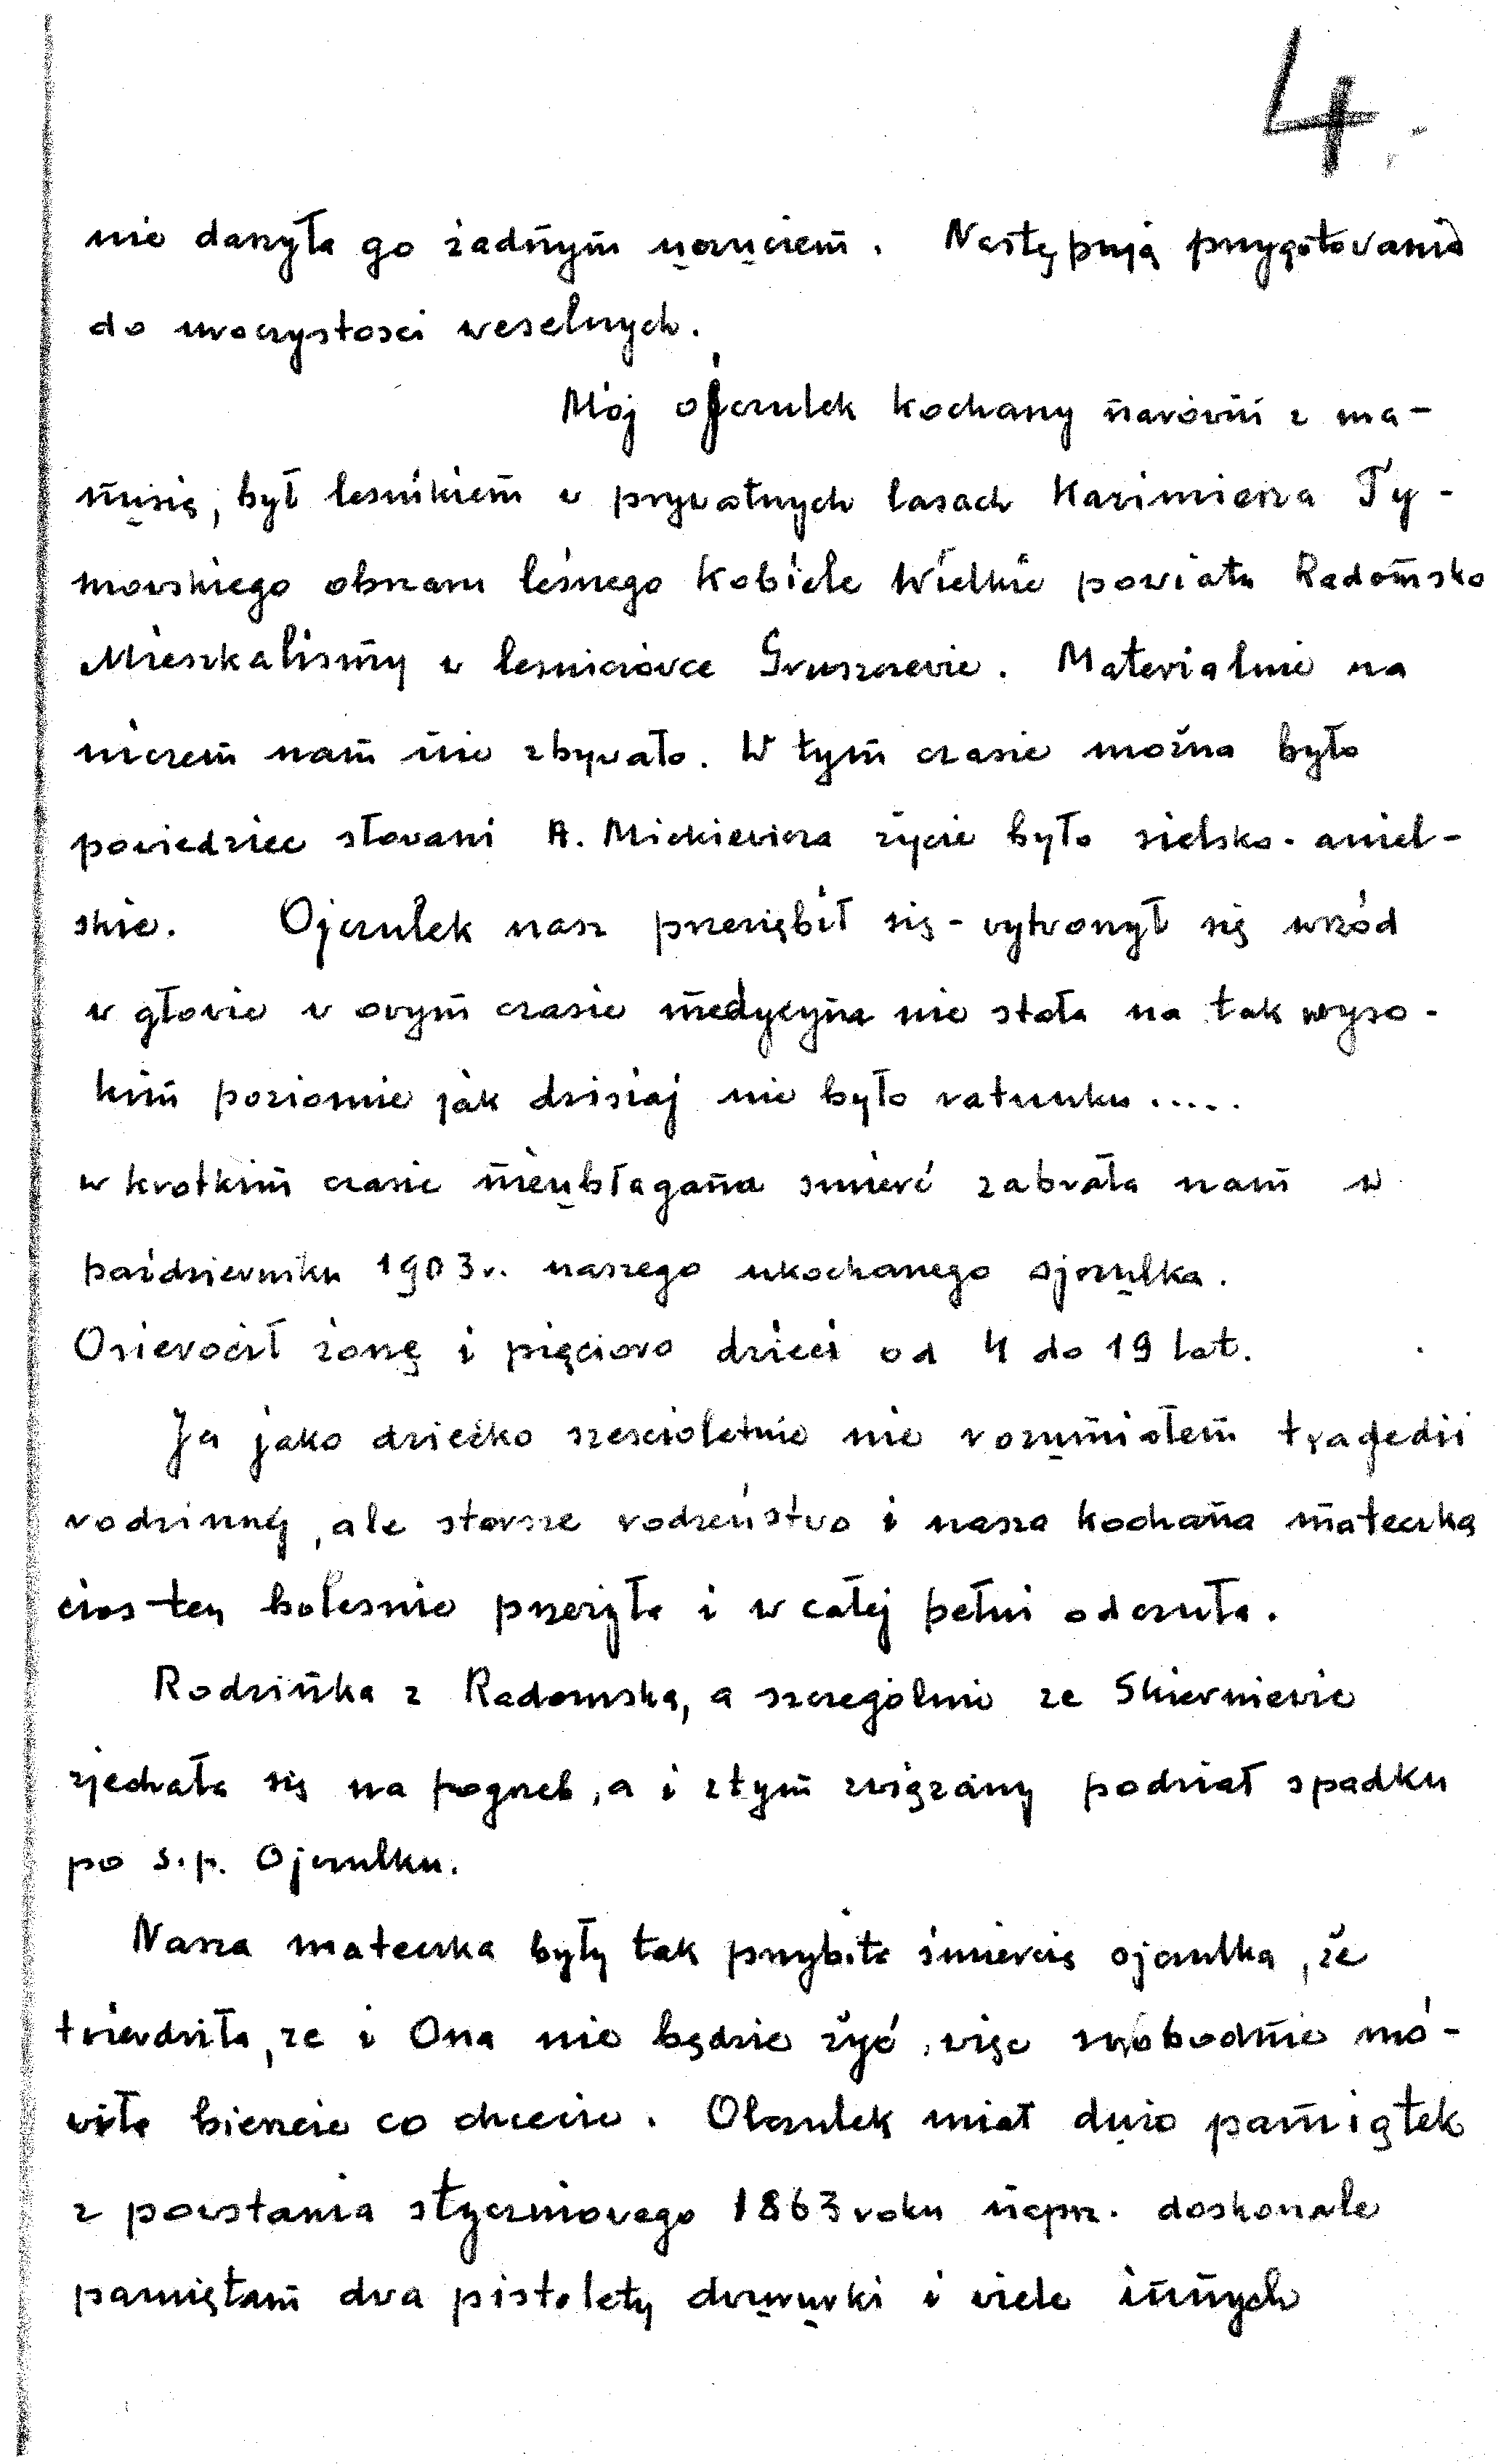 4.
nie darzyła go żadnym uczuciem. Następują przygotowania
do uroczystosci weselnych.
Mój ojczulek kochany narówni z ma-
musią, był lesnikiem w prywatnych lasach Kazimierza Ty-
morskiego obszaru leśnego Kobiele Wielkie powiatu Radomsko
Mieszkalismy w lesniczówce Gruszczewie. Materialnie na
niczem nam nie zbywało. W tym czasie można było
powiedziec słowami A. Mickiewicza życie było sielsko-aniel-
skie. Ojczulek nasz przeziębił się - wytworzył się wrzód
w głowie w owym czasie medycyna nie stała na tak wyso-
kim poziomie jak dzisiaj nie było ratunku.....
w krotkim czasie nieubłagana smierć zabrała nam w
październiku 1903r. naszego ukochanego ojczulka.
Osierocił żonę i pięcioro dzieci od 4 do 19 lat.
Ja jako dziecko szescioletnie nie rozumiałem tragedii
rodzinnej, ale starsze rodzeństwo i nasza kochana mateczka
cios ten bolesnie przeżyła i w całej pełni odczuła.
Rodzinka z Radomska, a szczególnie ze Skierniewic
zjechała się na pogrzeb, a i z tym związany podział spadku
po s.p. Ojczulku.
Nasza mateczka była tak przybita śmiercią ojczulka, że
twierdziła, ze i Ona nie będzie żyć, więc swobodnie mó-
wiła bierzcie co chcecie. Ojczulek miał dużo pamiątek
z powstania styczniowego 1863 roku naprz. doskonale
pamiętam dwa pistolety dwururki i wiele innych